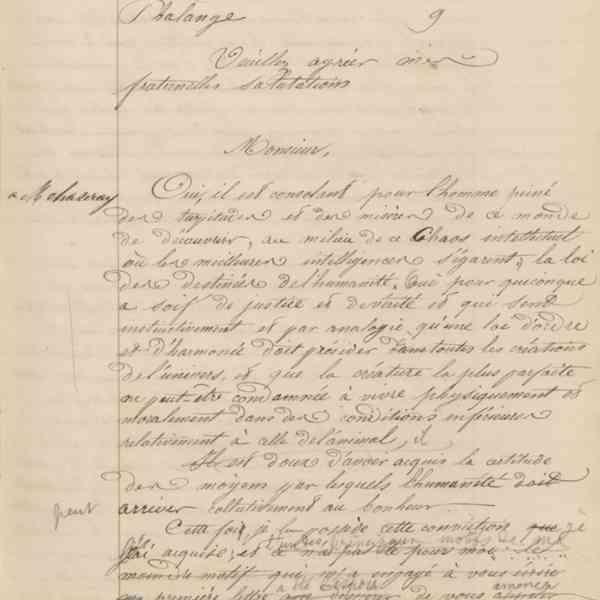 Phalange 9
Veuillez agréer mes
fraternelles salutations
Monsieur,
à M chazeray
Oui, il est consolant pour l'homme peiné
des turpitudes et des misères de ce monde
de découvrir, au milieu de ce Chaos intellectuel
où les meilleures intelligences s'égarent, la loi
des destinées de l'humanité. Oui pour quiconque
a soif de justice et de vérité et qui sent
instinctivement et par analogie, qu'une loi d'ordre
et d'harmonie doit présider dans toutes les créations
de l'univers, et que la créature la plus parfaite
ne peut être condamnée à vivre physiquement et
moralement dans des conditions inférieures
relativement à celle de l'animal, il
Il est doux d'avoir acquis la certitude
des moyens par lesquels l'humanité doit
peut arriver collectivement au bonheur.
Cette foi, je la possède cette conviction que je
l'ai acquise, et ce n'est pas pour moi le
moindre motif qui m'a engagé à vous écrire
ma première lettre de vous